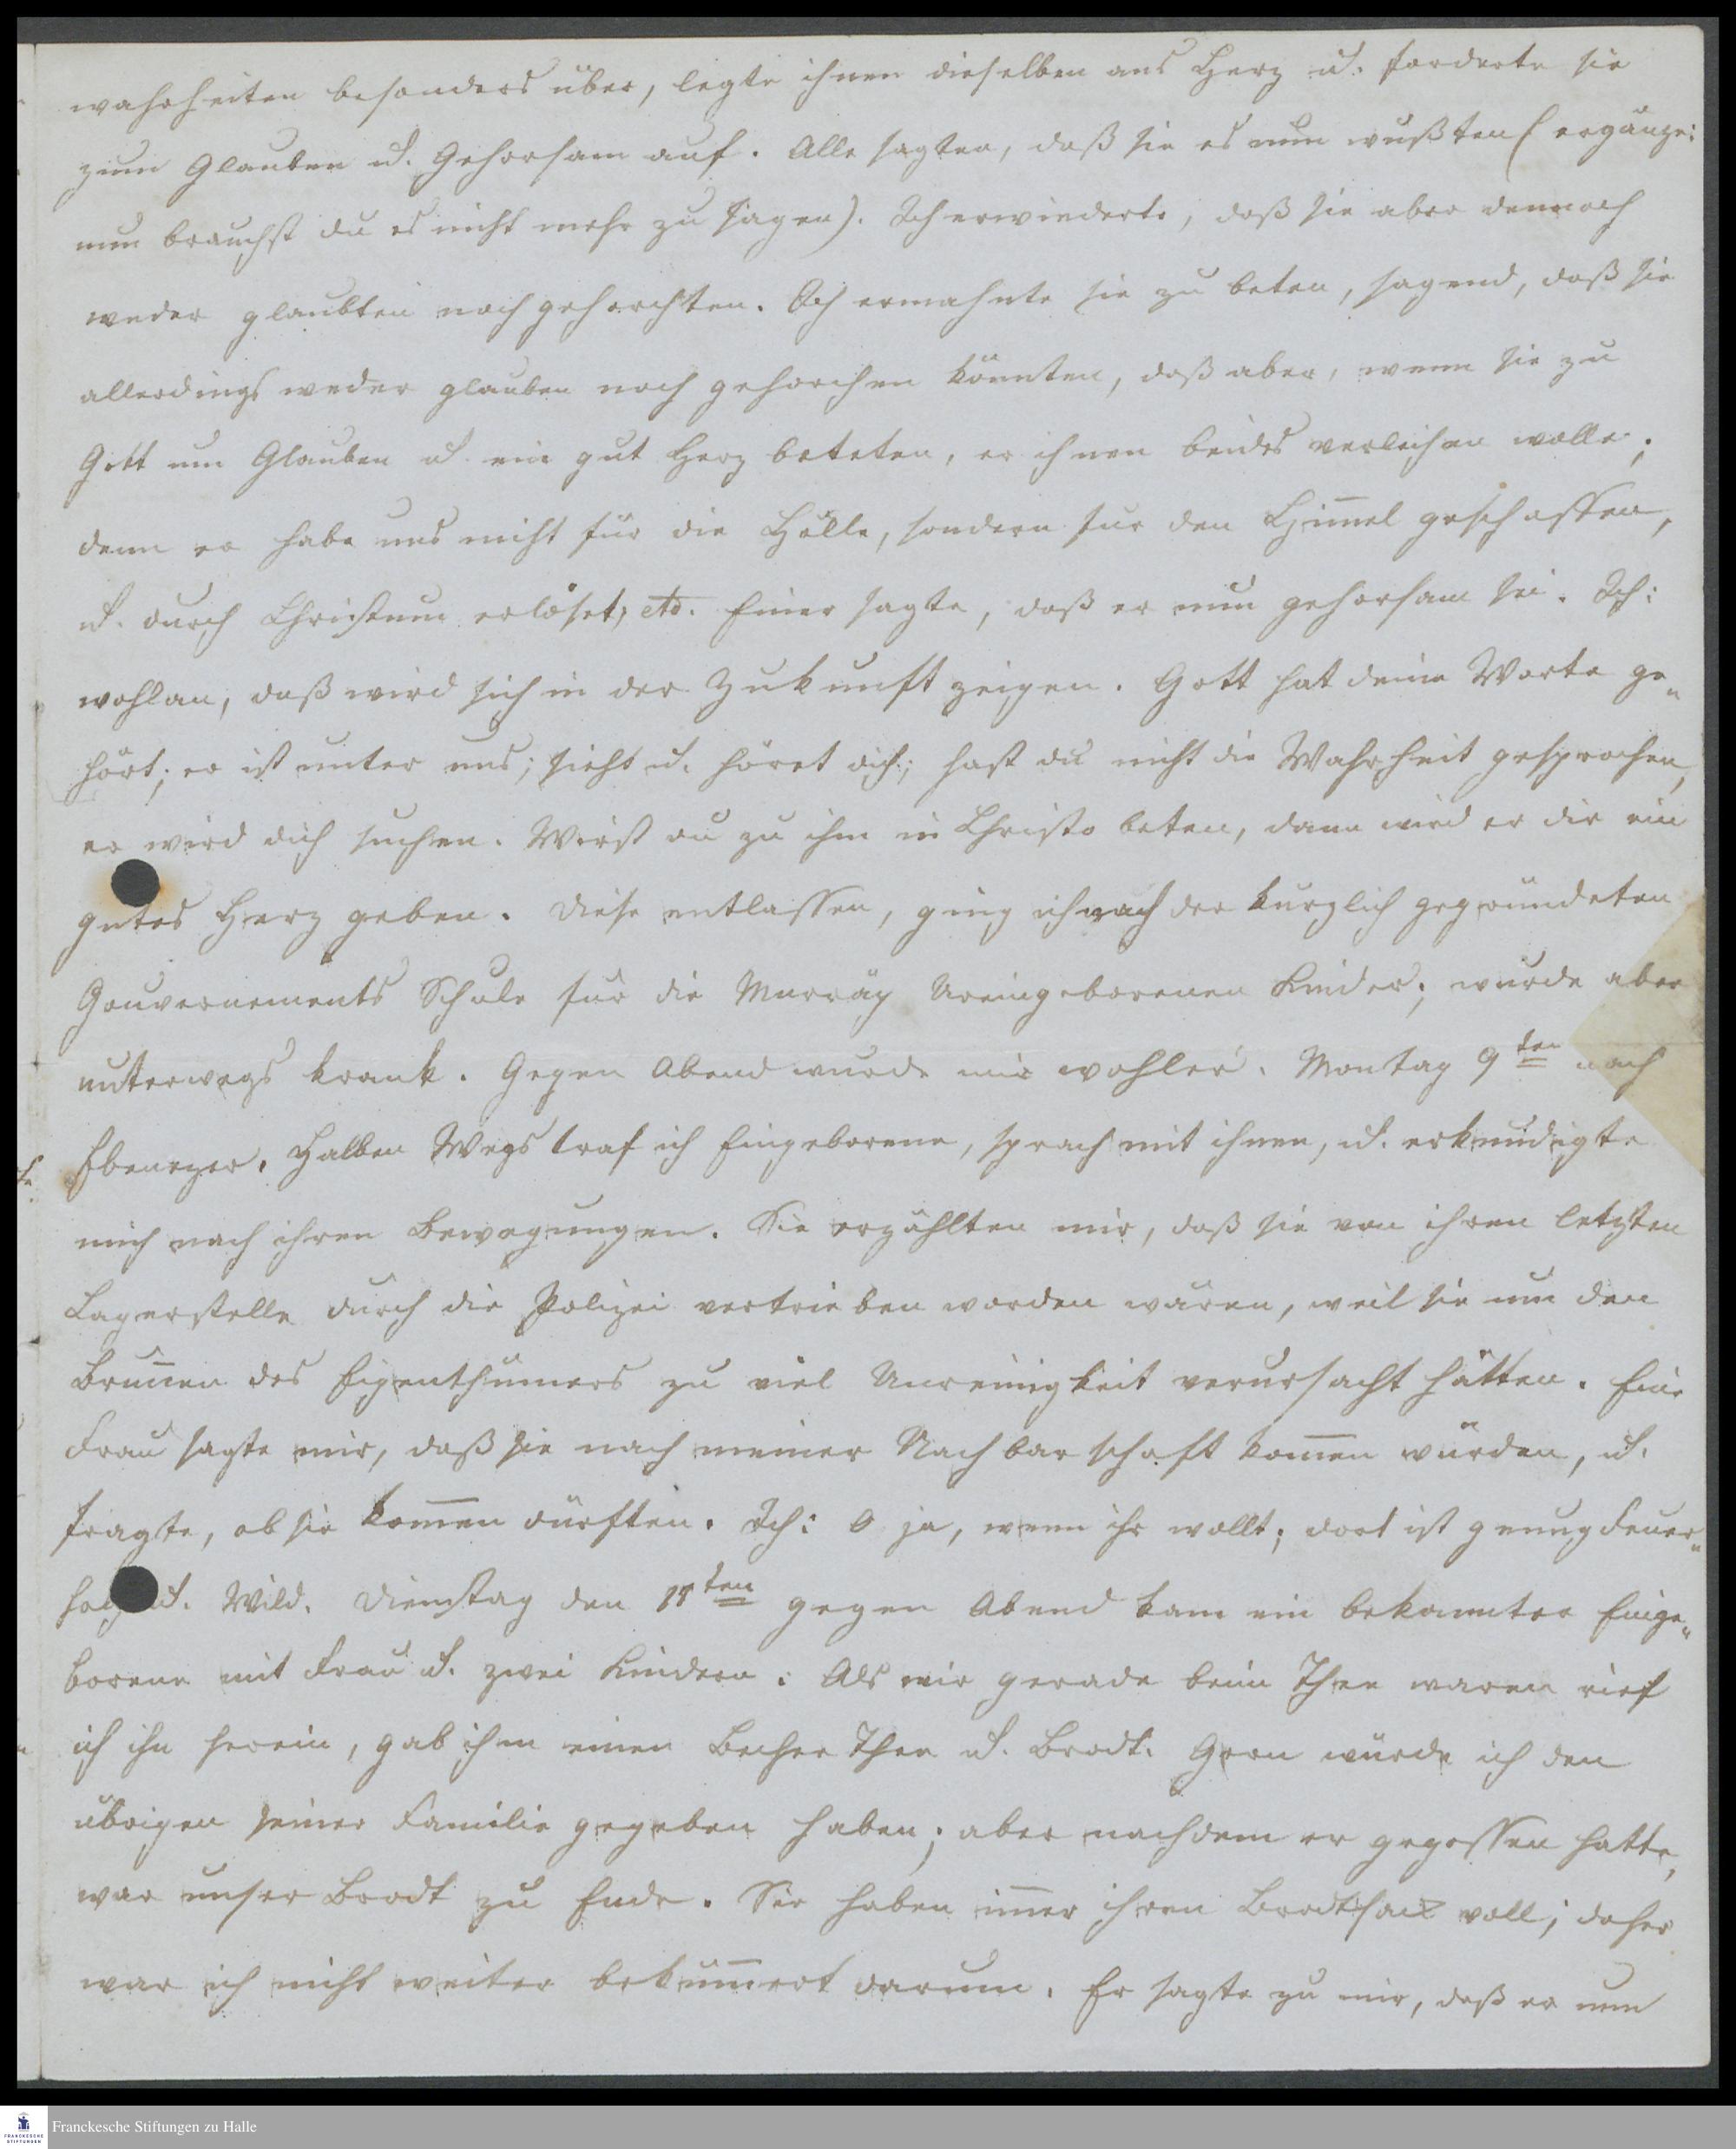 wahrheiten besonders über, legte ihnen dieselben ans Herz u. forderte sie
zum Glauben u. Gehorsam auf. Alle sagten, daß sie es nun wußten (ergänze:
nun brauchst du es nicht mehr zu sagen). Ich erwiederte, daß sie aber dennoch
weder glaubten noch gehorchten. Ich ermahnte sie zu beten, sagend, daß sie
allerdings weder glauben noch gehorchen könnten, daß aber, wenn sie zu
Gott um Glauben u. ein gut Herz beteten, er ihnen beides verleihen wolle;
denn er habe uns nicht für die Hölle, sondern für den Him̅el geschaffen,
u. durch Christum erlöset, etc. Einer sagte, daß er nun gehorsam sei. Ich:
wohlan, daß wird sich in der Zukunft zeigen. Gott hat deine Worte ge-
hört; er ist unter uns; sieht u. höret dich; hast du nicht die Wahrheit gesprochen,
er wird dich suchen. Wirst du zu ihm in Christo beten, dann wird er dir ein
gutes Herz geben. Diese entlassen, ging ich nach der kürzlich gegründeten
Gouvernements Schule für die Murray Ureingeborenen Kinder; wurde aber
unterwegs krank. Gegen Abend wurde mir wohler. Montag 9ten nach
Ebenezer. Halben Wegs traf ich Eingeborene, sprach mit ihnen, u. erkundigte
mich nach ihren Bewegungen. Sie erzählten mir, daß sie von ihren letzten
Lagerstelle durch die Polizei vertrieben worden wären, weil sie um den
Brun̅en des Eigenthümers zu viel Unreinigkeit verursacht hätten. Eine
Frau sagte mir, daß sie nach meiner Nachbarschaft kom̅en würden, u.
fragte, ob sie kom̅en dürften. Ich: O ja, wenn ihr wollt; dort ist genug Feuer-
holz u. Wild. Dienstag den ten gegen Abend kam ein bekannter Einge-
borene mit Frau u. zwei Kindern. Als wir gerade beim Thee waren rief
ich ihn herein, gab ihm einen Becher Thee u. Brodt. Gern würde ich den
übrigen seiner Familie gegeben haben; aber nachdem er gegessen hatte,
war unser Brodt zu Ende. Sie haben im̅er ihren Brodtsack voll; daher
war ich nicht weiter beküm̅ert darum. Er sagte zu mir, daß er nun
Franckesche Stiftungen zu Halle
FRANCKESCHE
STIFTUNGEN